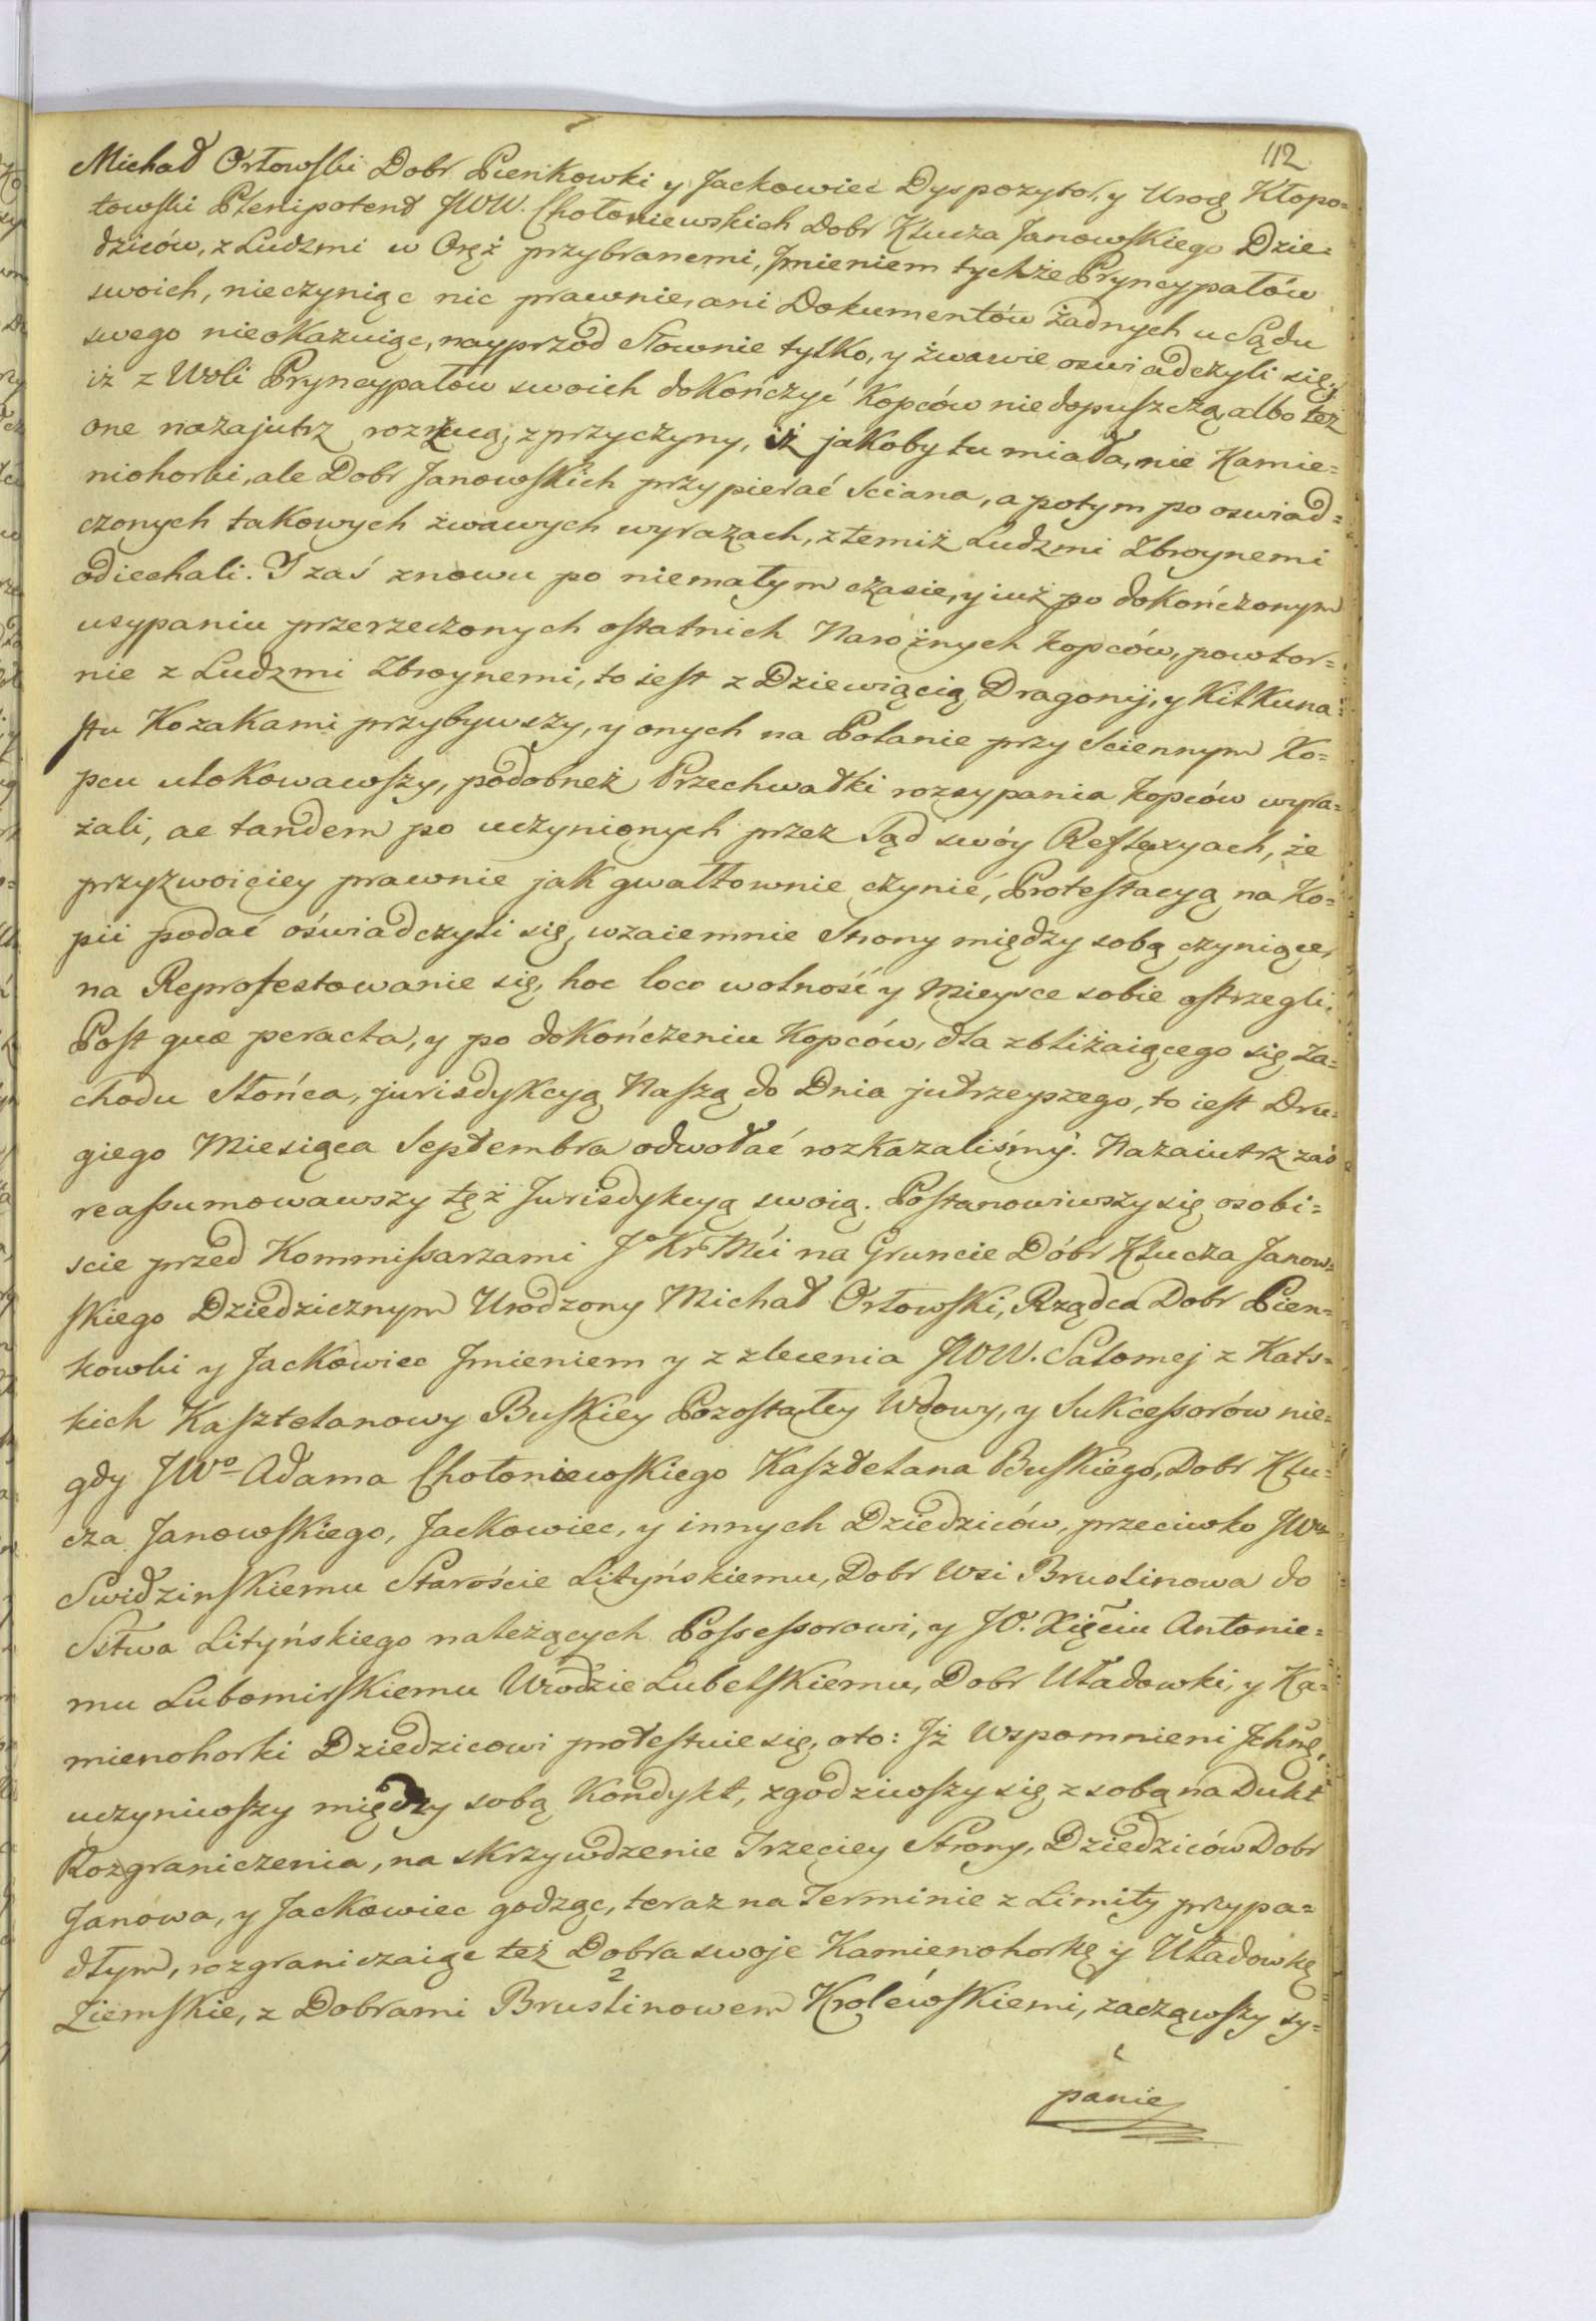 112
Michał Orłowski Dobr Pienkowki y Jackowiec Dyspozytor, y Urod. Kłopo=
towski Plenipotent JWW. Chołoniewskich Dobr Klucza Janowskiego Dzie=
dziców, z Ludzmi w Oręż przybranemi, Jmieniem tychże Pryncypałów
swoich, nieczyniąc nic prawnie, ani Dokumentów żadnych u Sądu
swego nieokazuiąc, nayprzod słownie tylko, y żwawie oswiadczyli się,
iż z Woli Pryncypałow swoich dokończyć Kopców niedopuszczą, albo też
one nazajutrz rozrzucą, z przyczyny, iż jakoby tu miała, nie Kamie=
niohorki, ale Dobr Janowskich przypierać sciana, a potym po oswiad=
czonych takowych żwawych wyrazach, z temiż Ludzmi Zbroynemi
odiechali. I zaś znowu po niemałym czasie, y iuż po dokończonym
usypaniu przerzeczonych ostatnich Narożnych kopców, powtor=
nie z Ludzmi Zbroynemi, to iest z Dziewiącią Dragonij, y Kilkuna=
stu Kozakami przybywszy, y onych na Polanie przy sciennym Ko=
pcu ulokowawszy, podobneż Przechwałki rozsypania kopców wyra=
żali, ac tandem po uczynionych przez Sąd swóy Reflexyach, że
przyzwoiciey prawnie jak gwałtownie czynić, Protestacyą na Ko=
pii podać oświadczyli się, wzaiemnie Strony między sobą czyniące,
na Reprotestowanie się, hoc loco wolność y Mieysce sobie ostrzegli,
Post quæ peracta, y po dokończeniu Kopców, dla zbliżaiącego się Za=
chodu Słońca, jurisdykcyą Naszą do Dnia jutrzeyszego, to iest Dru=
giego Miesiąca Septembra odwołać rozkazaliśmy. Nazaiutrz zaś
reassumowawszy tęż Jurisdykcyą swoią. Postanowiwszy się osobi=
scie przed Kommissarzami Jo Kr Mći na Gruncie Dóbr Klucza Janow=
skiego Dziedzicznym Urodzony Michał Orłowski, Rządca Dobr Pien=
kowki y Jackowiec Jmieniem y z zlecenia JWW. Salomej z Kats=
kich Kasztelanowy Buskiey Pozostałey Wdowy, y Sukcessorów nie=
gdy JWo Adama Chołoniewskiego Kasztelana Buskiego, Dobr Klu=
cza Janowskiego, Jackowiec, y innych Dziedziców, przeciwko JWu
Swidzinskiemu Staroście Lityńskiemu, Dobr Wsi Bruslinowa do
Sstwa Lityńskiego należących Possessorowi, y JO. Xięciu Antonie=
mu Lubomirskiemu Wrodzie Lubelskiemu, Dobr Uładowki, y Ka=
mienohorki Dziedzicowi protestuie się, oto: Iż Wspomnieni Jchmć,
uczyniwszy między sobą Kondykt, zgodziwszy się z sobą na Dukt
Rozgraniczenia, na skrzywdzenie Trzeciey Strony, Dziedziców Dobr
Janowa, y Jackowiec godząc, teraz na Terminie z Limity przypa=
dłym, rozgraniczaiąc też Dobra swoje Kamienohorkę y Uładowkę
Ziemskie, z Dobrami Bruslinowem Krolewskiemi, zacząwszy sy=
panie